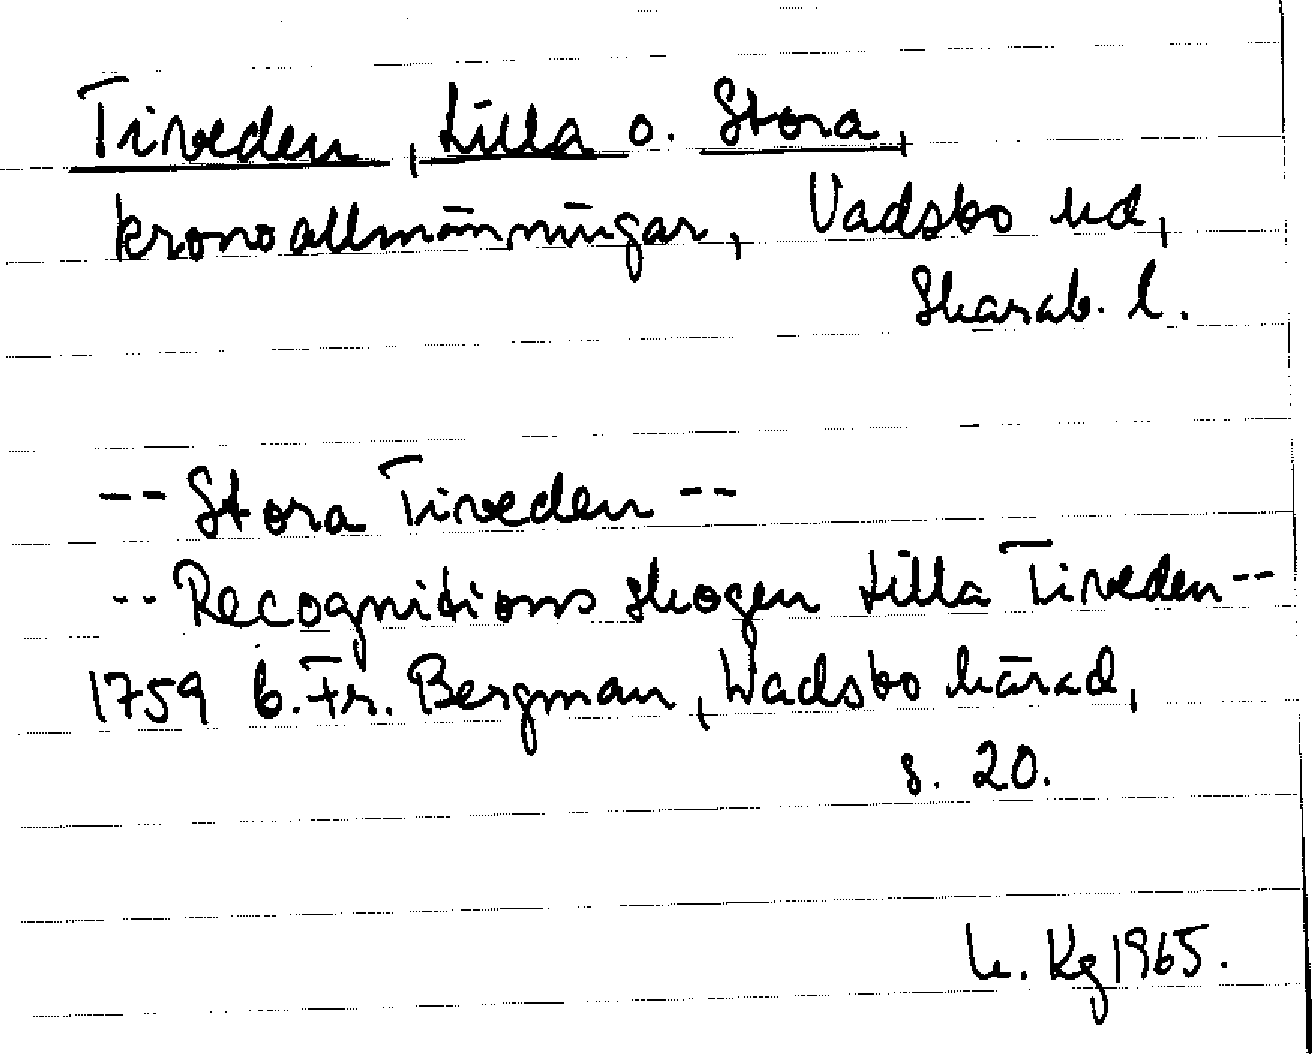 Tiveden, Lilla o. Stora,
kronoallmänningar, Vadsbo hd,
Skarab. l.
-- Stora Tiveden --
-- Recognitions skogen Lilla Tiveden --
1759 b. Fr. Bergman, Wadsbo härad,
s. 20.
h. Kg 1965.